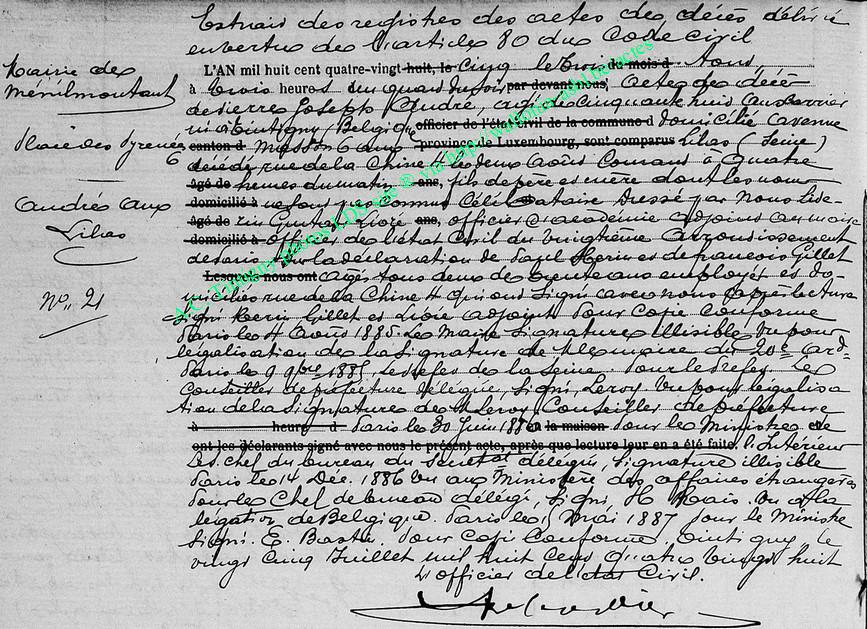 Extrait des registres des actes de décès délivré
en vertu de l'article 80 du Code Civil
Mairie de
Ménilmontant
Place des Pyrénées
6
André aux
Lilas
N° 21
L'AN mil huit cent quatre-vingt huit, le Cinq le trois du mois d Aout,
à trois heures un quart du soir par devant nous, Acte de décès
de Pierre Joseph André, agé de Cinquante huit ans
né à Tintigny (Belgique officier de l'état civil de la commune d domicilié avenue
canton d 6 aux province de Luxembourg, sont comparus Lilas (Seine)
décédé rue de la Chine 4 le deux Août Courant à quatre
âgé de heures du matin ans, fils de père et mère dont les noms
domicilié à ne sont pas connus Célibataire Dressé par Nous
âgé de ans, officier d'académie adjoint au maire
domicilié à officier de l'état Civil du vingtième arrondissement
de Paris sur la déclaration de Paul et de françois Gillet
Lesquels nous ont agés tous deux de trente ans employés et do-
miciliés rue de la Chine 4 qui ont Signé avec nous après lecture
Signé Gillet et adjoint Pour Copie Conforme
Paris le 4 Août 1885. Le Maire Signature illisible Vu pour
légalisation de la Signature de du 20e Ard-
Paris le 9 9bre 1885, le préfet de la Seine. Pour le Préfet. Le
Conseiller de préfecture délégué, Signé, Leroy. Vu pour légalisa
tion de la Signature de M Leroy Conseiller de préfecture
à heure d Paris le 30 Juin 1886 en la maison Pour le Ministre de
ont les déclarants signé avec nous le présent acte, après que lecture leur en a été faite. l'Intérieur
Le chef du bureau du délégué, Signature illisible
Paris le 14 Déc. 1886 Vu au Ministère des affaires étrangères
Pour le Chef de bureau délégué, Signé, Vu à la
légation de Belgique. Paris le 5 Mai 1887 pour le Ministre
Signé. E. Pour Copie Conforme, Tintigny le
vingt cinq Juillet mil huit Cent quatre vingt huit
L'officier de l'état Civil.